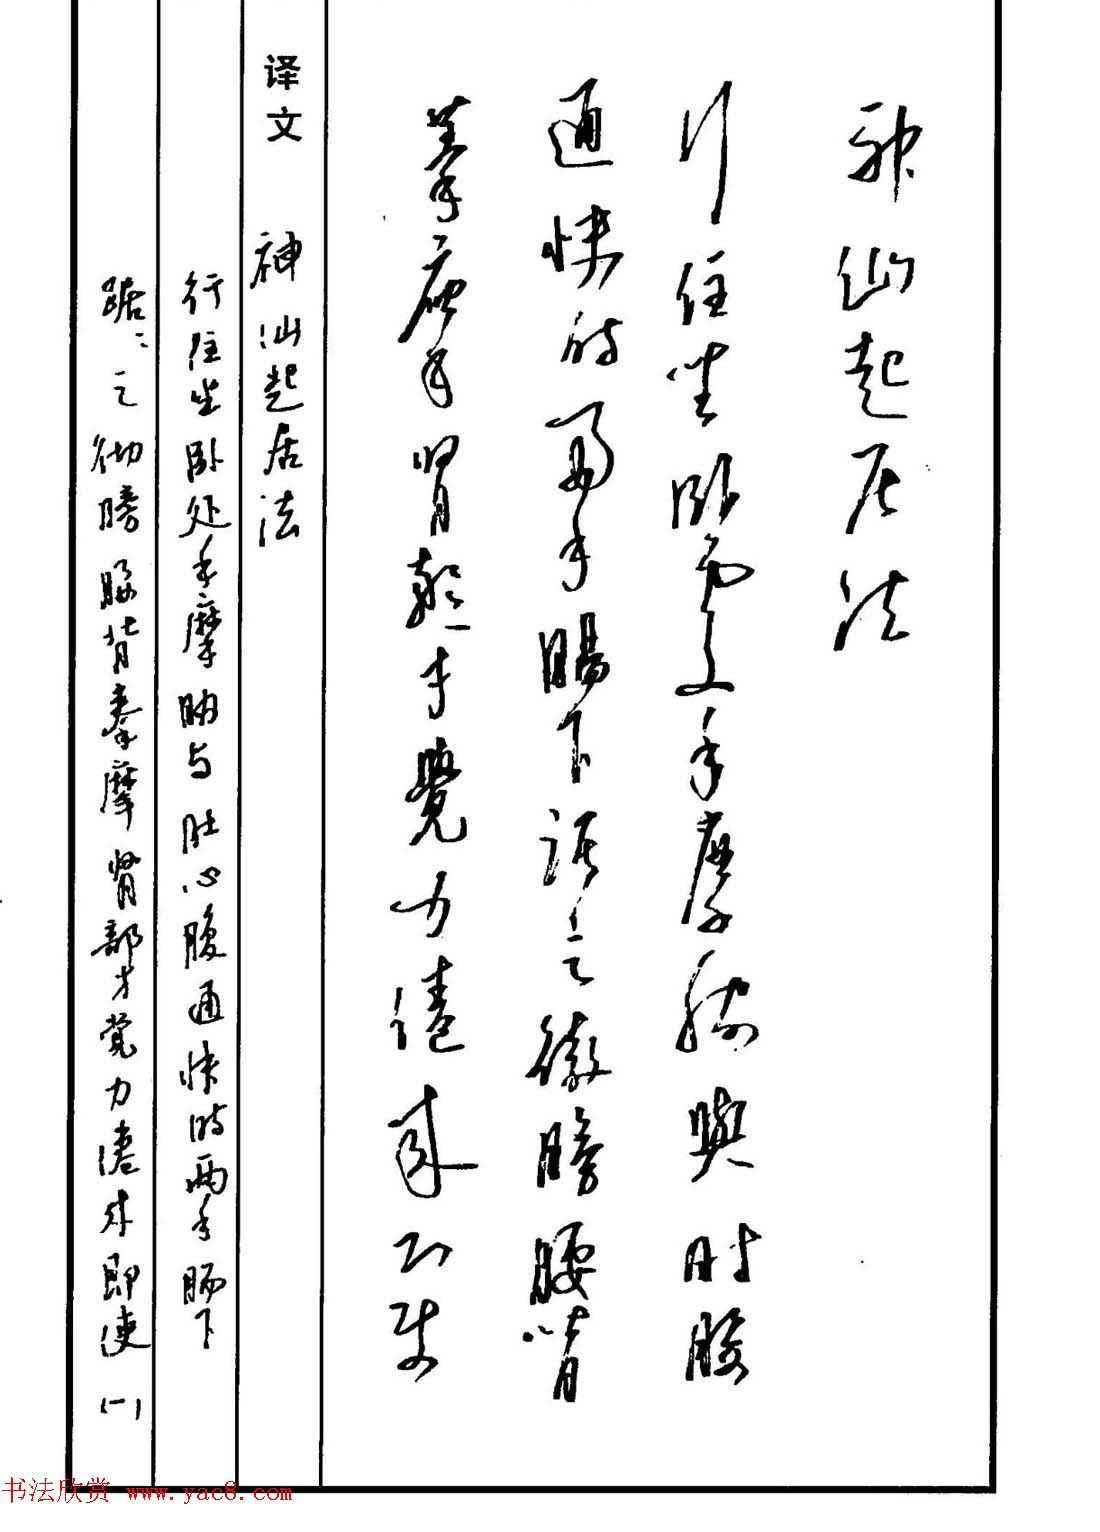 神仙起居法
行住坐卧处手摩胁與肚腹
通快时两手肠下踞之彻膀腰背
拳摩肾部才觉力倦来即使
译文 神仙起居法
行住坐卧处手摩胁与肚心腹通快时两手肠下
踞：之彻膀腰背拳摩肾部才觉力倦来即使(一)
书法欣赏 www.yac8.com